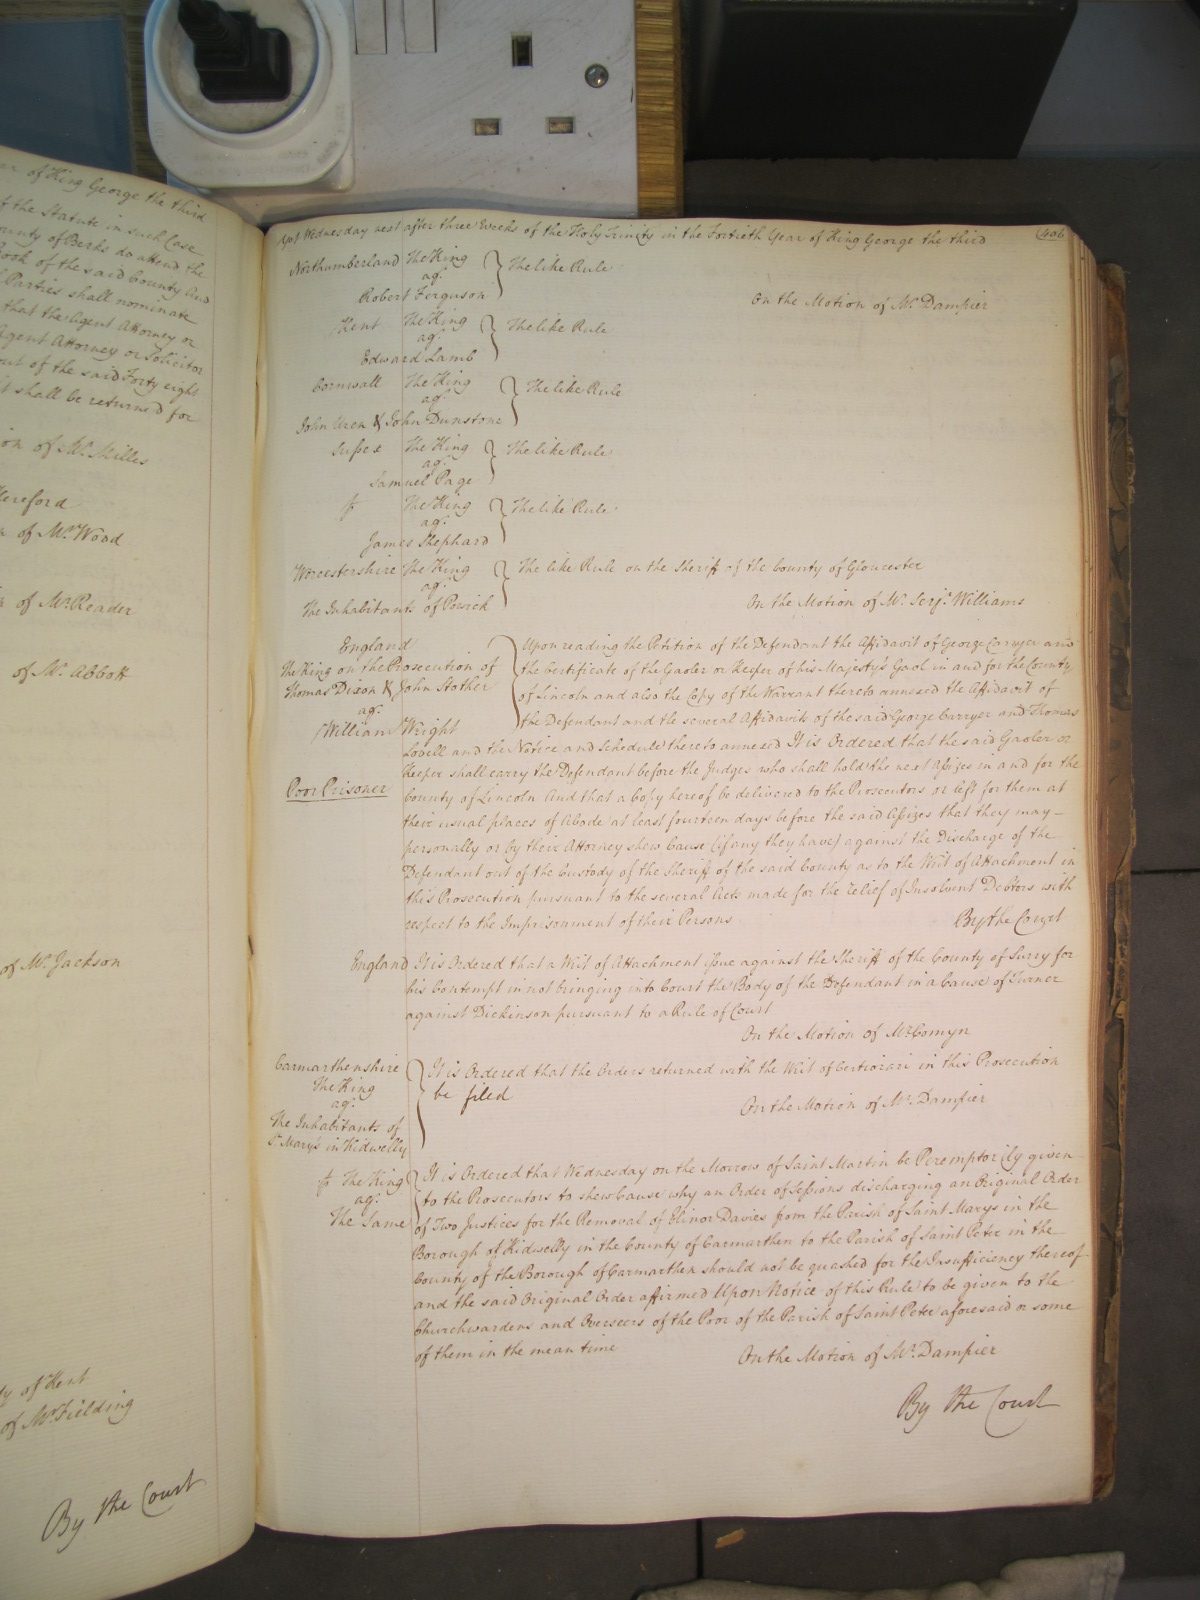 ar of King George the third
f the Statute in such Case
ounty of Berks do attend the
Book of the said County And
Parties shall nominate
that the Agent Attorney or
Agent Attorney or Solicitor
out of the said Forty eight
it shall be returned for
ion of Mr. Milles
Hereford
of Mr. Wood
of Mr. Reader
of Mr. Abbott
of Mr. Jackson
ty of Kent
of Mr. Fielding
By the Court
Wednesday next after three Weeks of the Holy Trinity in the Fortieth Year of King George the third
406
Northumberland The King
agt.
Robert Ferguson
The like Rule
On the Motion of Mr. Dampier
Kent The King
agt.
Edward Lamb
The like Rule
Cornwall The King
agt.
John Uren & John Dunstone
The like Rule
Sussex The King
agt.
Samuel Page
The like Rule
The King
agt.
James Shephard
The like Rule
Worcestershire The King
agt.
The Inhabitants of Powick
The like Rule on the Sheriff of the County of Gloucester
On the Motion of Mr. Serjt. Williams
England
The King on the Prosecution of
Thomas Dixon & John Stother
agt.
William Wright
Poor Prisoner
Upon reading the Petition of the Defendant the Affidavit of George Curryer and
the Certificate of the Gaoler or Keeper of his Majesty's Gaol in and for the County
of Lincoln and also the Copy of the Warrant thereto annexed the Affidavit of
the Defendant and the several Affidavits of the said George Curryer and Thomas
Lodell and the Notice and Schedule thereto annexed It is Ordered that the said Gaoler or
Keeper shall carry the Defendant before the Judges who shall hold the next Assizes in and for the
County of Lincoln And that a Copy hereof be delivered to the Prosecutors or left for them at
their usual places of Abode at least fourteen days before the said Assizes that they may
personally or by their Attorney shew Cause (if any they have) against the Discharge of the
Defendant out of the Custody of the Sheriff of the said County as to the Writ of Attachment in
this Prosecution pursuant to the several Acts made for the relief of Insolvent Debtors with
respect to the Imprisonment of their Persons
By the Court
England It is Ordered that a Writ of Attachment issue against the Sheriff of the County of Surry for
his Contempt in not bringing into Court the Body of the Defendant in a Cause of Turner
against Dickinson pursuant to a Rule of Court
On the Motion of Mr. Comyn
Carmarthenshire
The King
agt.
The Inhabitants of
St. Mary's in Kidwelly
It is Ordered that the Orders returned with the Writ of Certiorari in this Prosecution
be filed
On the Motion of Mr. Dampier
The King
agt.
The Same
It is Ordered that Wednesday on the Morrow of Saint Martin be Peremptorily given
to the Prosecutors to shew Cause why an Order of Sessions discharging an Original Order
of Two Justices for the Removal of Elinor Davies from the Parish of Saint Marys in the
Borough of Kidwelly in the County of Carmarthen to the Parish of Saint Peter in the
County of the Borough of Carmarthen should not be quashed for the Insufficiency thereof
and the said Original Order affirmed Upon Notice of this Rule to be given to the
Churchwardens and Overseers of the Poor of the Parish of Saint Peter aforesaid or some
of them in the mean time
On the Motion of Mr. Dampier
By the Court